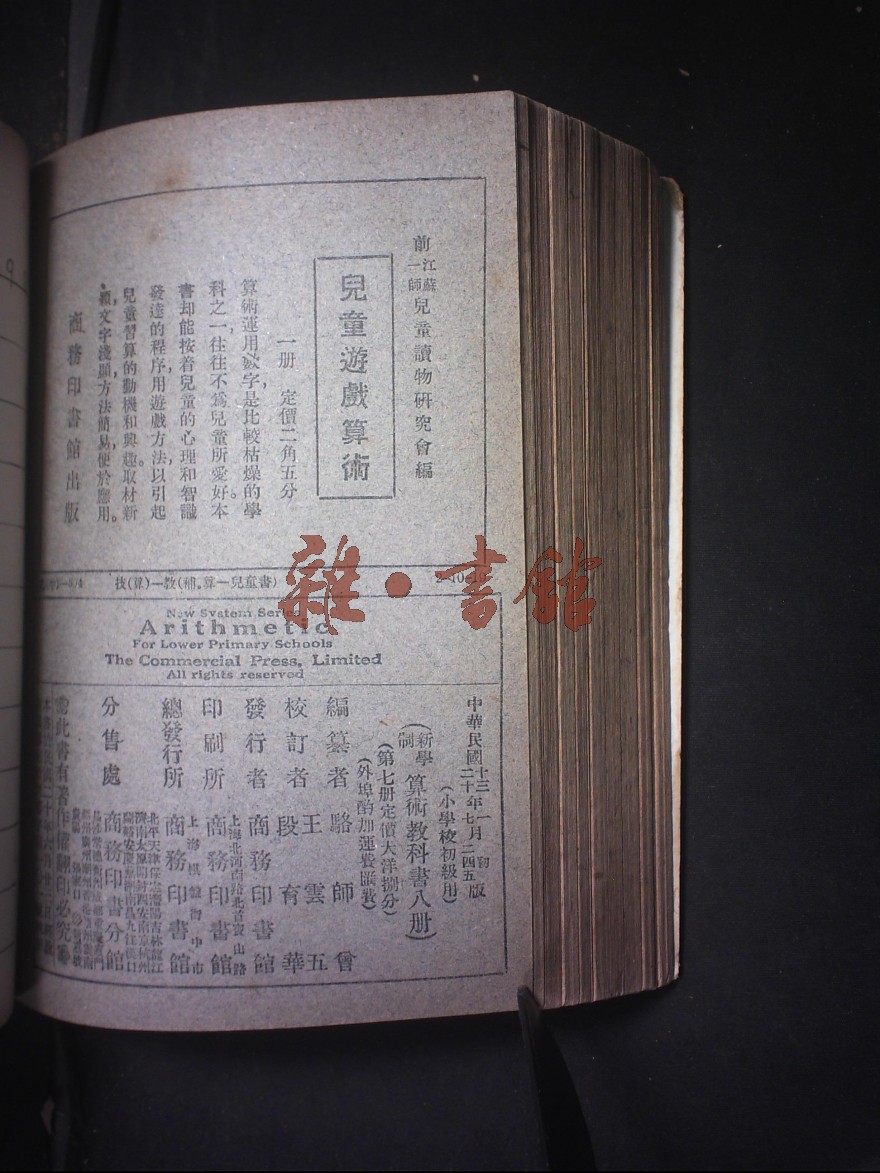 前江蘇一師兒童讀物研究會編
兒童遊戲算術
一册 定價二角五分
算術運用數字,是比較枯燥的學
科之一,往往不為兒童所愛好。本
書却能按着兒童的心理和智識
發達的程序,用遊戲方法以引起
兒童習算的動機和興趣。取材新
穎,文字淺顯,方法簡易,便於應用。
商務印書館出版
技(算)—教(補。算—兒童書)
雜·書館
New System Series
Arithmetic
For Lower Primary Schools
The Commercial Press, Limited
All rights reserved
中華民國十三年一月初版
二十年七月二四五版
(小學校初級用)
(新學制算術教科書八册)
(第七册定價大洋捌分)
(外埠酌加運費匯費)
編纂者 駱師曾
校訂者 王雲五 段有華
發行者 商務印書館
上海北河南路北首寶山路
印刷所 商務印書館
上海棋盤街中市
總發行所 商務印書館
分售處 商務印書分館
此書有著作權翻印必究